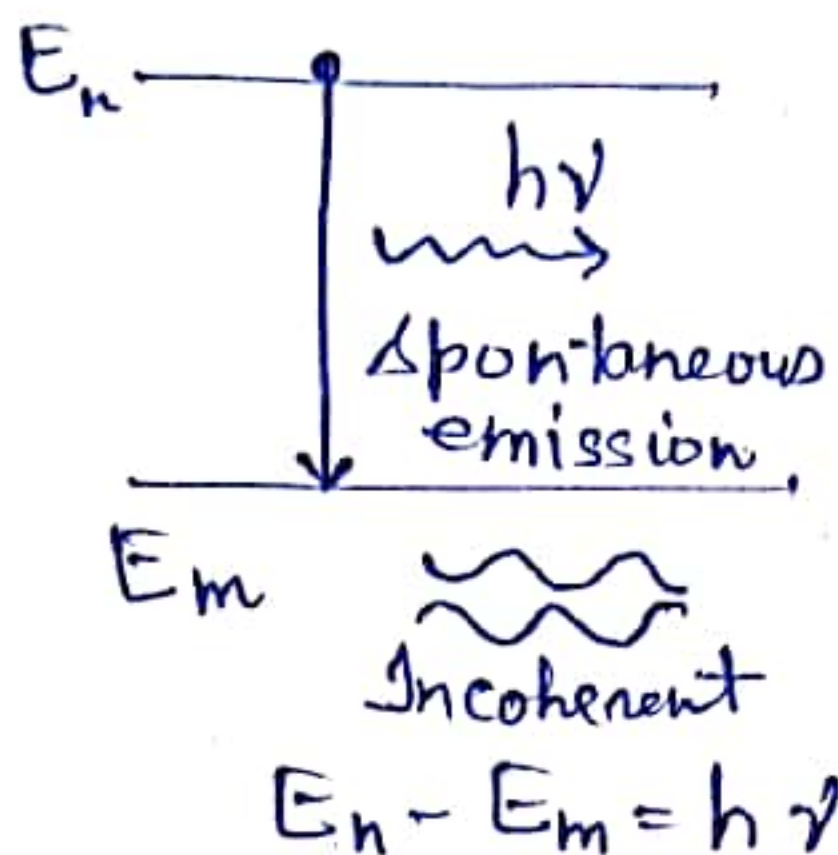 Eₙ
hν
Spontaneous
emission
Eₘ
Incoherent
Eₙ - Eₘ = hν